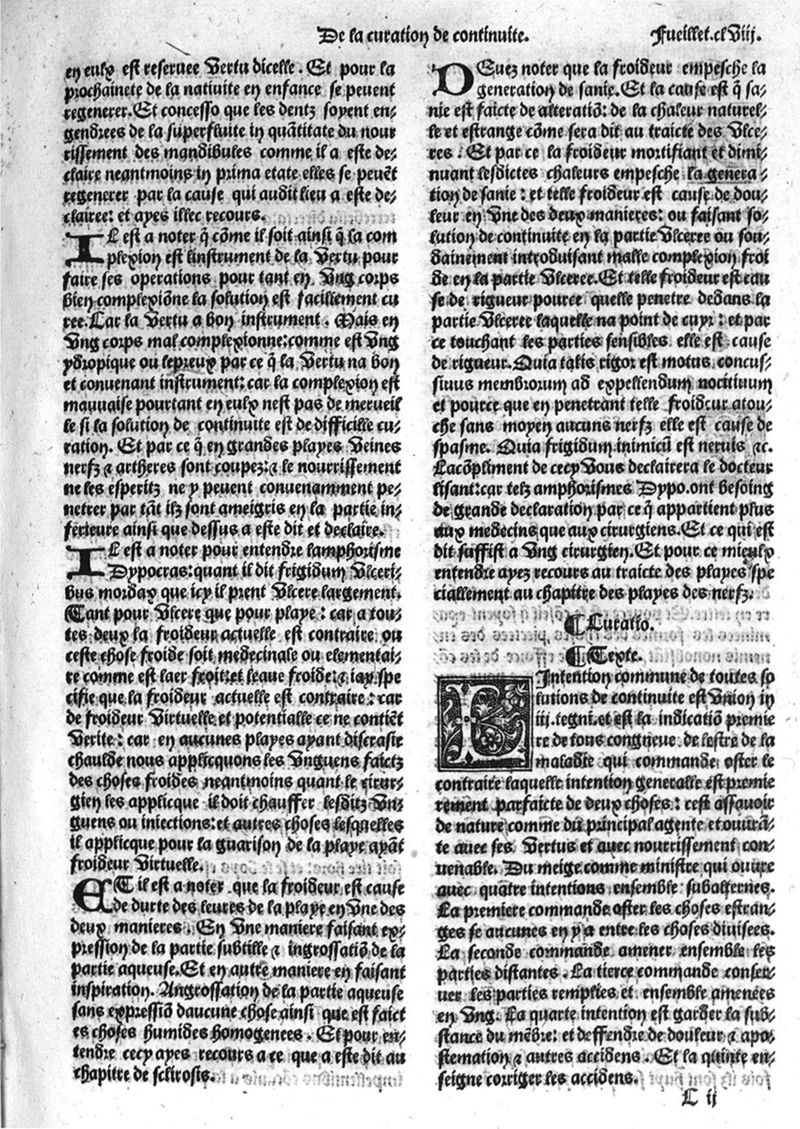 De la curation de continuite.
Fueillet.clViij.
en eulx est reseruee Vertu dicelle. Et pour la
prochainete de la natiuite en enfance se peuent
regenerer. Et concesso que les dentz soyent en-
gendrees de la superfluite in quātitate du nour
rissement des mandibules comme il a este de-
claire neantmoins in prima etate elles se peuēt
regenerer par la cause qui audit lieu a este de-
clairee: et ayes illec recours.
IL est a noter q̄ cōme il soit ainsi q̄ la com
plexion est linstrument de la Vertu pour
faire ses operations pour tant en Vng corps
bien complexiōne la solution est facillement cu
ree. Car la Vertu a bon instrument. Mais en
Vng corps mal complexionne: comme est Vng
ydropique ou lepreux par ce q̄ la Vertu na bon
et conuenant instrument: car la complexion est
mauuaise pourtant en eulx nest pas de merueil
le si la solution de continuite est de difficille cu-
ration. Et par ce q̄ en grandes playes Veines
nerfz ⁊ artheres sont coupez: ⁊ le nourrissement
ne les esperitz ne y peuent conuenamment pe-
netrer par tāt ilz sont ameigris en la partie in-
ferieure ainsi que dessus a este dit et declaire.
IL est a noter pour entendre lamphorisme
Dypocras: quant il dit frigidum Vlceri-
bus mordax que icy il prent Vlcere largement.
Tant pour Vlcere que pour playe: car a tou-
tes deux la froideur actuelle est contraire ou
ceste chose froide soit medecinale ou elementai-
re comme est laer froit: et leaue froide: ⁊ iay spe
cifie que la froideur actuelle est contraire: car
de froideur Virtuelle et potentialle ce ne contiēt
Verite: car en aucunes playes ayant discrasie
chaulde nous applicquons les Vnguens faictz
des choses froides neantmoins quant le cirur-
gien les applicque il doit chauffer lesditz Vn-
guens ou iniections: et autres choses lesquelles
il applicque pour la guarison de la playe ayāt
froideur Virtuelle.
ET il est a noter que la froideur est cause
de durte des leures de la playe en Vne des
deux manieres. En Vne maniere faisant ex-
pression de la partie subtille ⁊ ingrossatiō de la
partie aqueuse. Et en autre maniere en faisant
inspiration. Angrossation de la partie aqueuse
sans expressiō daucune chose ainsi que est faict
es choses humides homogenees. Et pour en-
tendre cecy ayes recours a ce que a este dit au
chapitre de sclirosis.
DEuez noter que la froideur empesche la
generation de sanie. Et la cause est q̄ sa-
nie est faicte de alteratiō: de la chaleur naturel-
le et estrange cōme sera dit au traicte des Vlce-
res. Et par ce la froideur mortifiant et dimi-
nuant lesdictes chaleurs empesche la genera-
tion de sanie: et telle froideur est cause de dou-
leur en Vne des deux manieres: ou faisant so-
lution de continuite en la partie Vlceree ou sou-
dainement introduisant malle complexion froi
de en la partie Vlceree. Et telle froideur est cau
se de rigueur pource quelle penetre dedans la
partie Vlceree laquelle na point de cuyr: et par
ce touchant les parties sensibles elle est cause
de rigueur. Quia talis rigor est motus concus-
siuus membrorum ad expellendum nociuum
et pource que en penetrant telle froideur atou-
che sans moyen aucuns nerfz elle est cause de
spasme. Quia frigidum inimicū est neruis ⁊c.
Lacōpliment de cecy Vous declairera le docteur
lisant: car telz amphorismes Dypo. ont besoing
de grande declaration par ce q̄ appartient plus
aux medecins que aux cirurgiens. Et ce qui est
dit suffist a Vng cirurgien. Et pour ce mieulx
entendre ayez recours au traicte des playes spe
ciallement au chapitre des playes des nerfz.
¶Curatio.
¶Texte.
LIntention commune de toutes so
lutions de continuite est Vnion in
iij. tegni. et est la indicatiō premie
re de tous congneue de lestre de la
maladie qui commande oster le
contraire laquelle intention generalle est premie
rement parfaicte de deux choses: cest assauoir
de nature comme du principal agente et ouurā-
te auec ses Vertus et auec nourrissement con-
uenable. Du meige comme ministre qui ouure
auec quatre intentions ensemble subalternes.
La premiere commande oster les choses estran-
ges se aucunes en y a entre les choses diuisees.
La seconde commande amener ensemble les
parties distantes. La tierce commande conser-
uer les parties remplies et ensemble amenees
en Vng. La quarte intention est garder la sub-
stance du mēbre: et deffendre de douleur ⁊ apo-
stemation ⁊ autres accidens. Et la quinte en-
seigne corriger les accidens.
L ij